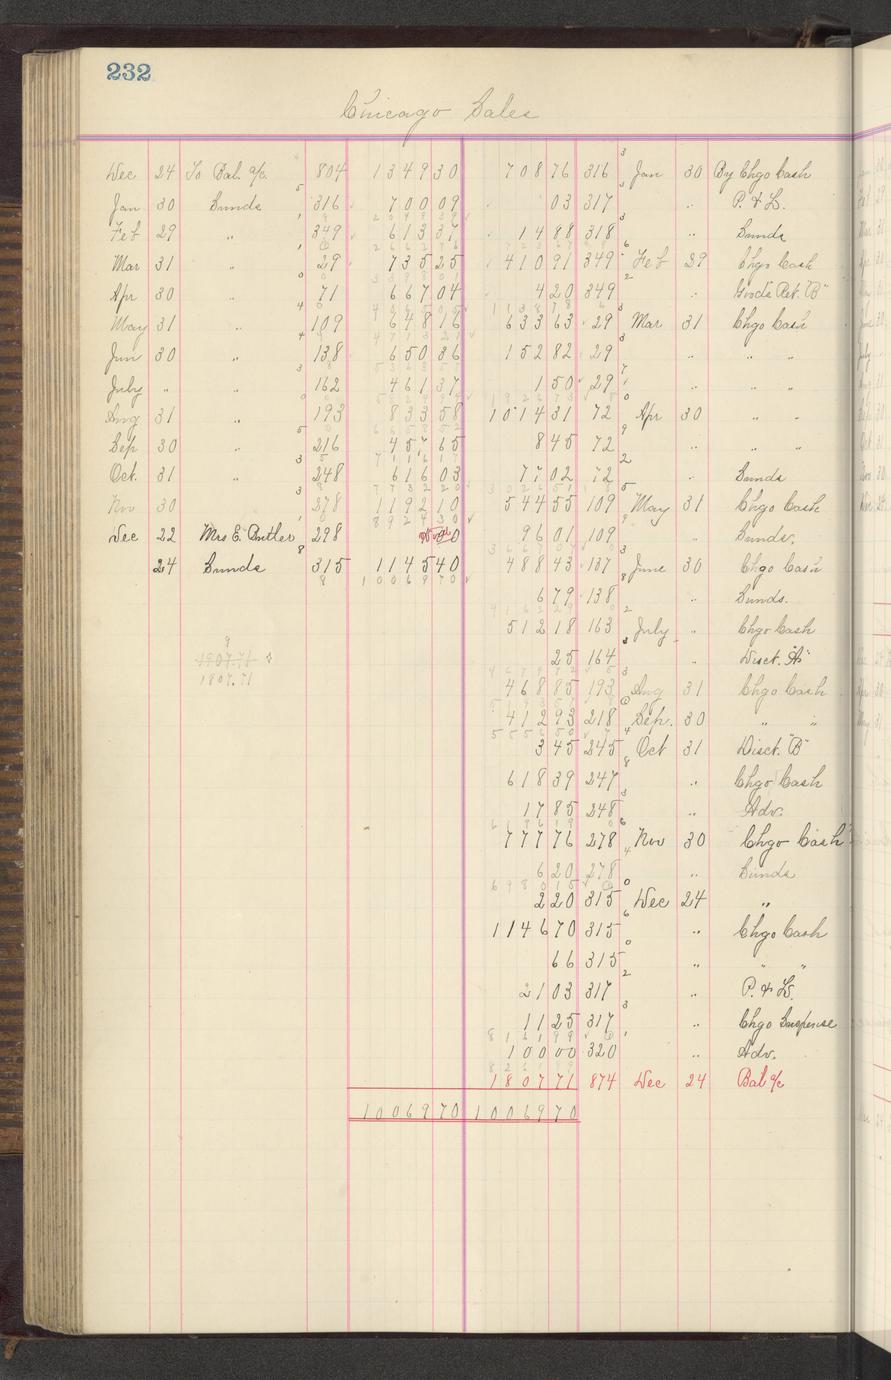 232
Chicago Sales
Dec 24 To Bal. a/c. 804 1349 30 708 76 316 Jan 30 By Chgo Cash
Jan 30 Sunds 316 700 09 03 317 " P. & Ls.
Feb 29 " 349 613 37 14 88 318 " Sunds
Mar 31 " 29 735 25 410 91 349 Feb 29 Chgo Cash
Apr 30 " 71 667 04 4 20 349 " Goods Ret. "B"
May 31 " 109 648 16 633 63 29 Mar 31 Chgo Cash
Jun 30 " 138 650 36 152 82 29 " " "
July " " 162 461 37 1 50 29 " " "
Aug 31 " 193 833 58 1014 31 72 Apr 30 " "
Sep 30 " 216 457 65 8 45 72 " " "
Oct. 31 " 248 616 03 77 02 72 " Sunds
Nov 30 278 1192 10 544 55 109 May 31 Chgo Cash
Dec 22 Mrs E. Butler 298 96 01 109 " Sunds.
24 Sunds 315 1145 40 488 43 137 June 30 Chgo Cash
10069 70
6 79 138 " Sunds.
512 18 163 July " Chgo Cash
25 164 " Disct. "A"
1907.71
1807.71
468 85 193 Aug 31 Chgo Cash
412 93 218 Sep. 30 " "
3 45 245 Oct 31 Disct. "B"
618 39 247 " Chgo Cash
17 85 248 " Adv.
777 76 278 Nov 30 Chgo Cash
6 20 278 " Sunds
2 20 315 Dec 24 "
1146 70 315 " Chgo Cash
66 315 " " "
21 03 317 " P. & Ls.
11 25 317 " Chgo Suspense
100 00 320 " Adv.
1807 71 874 Dec 24 Bal a/c
10069 70 10069 70